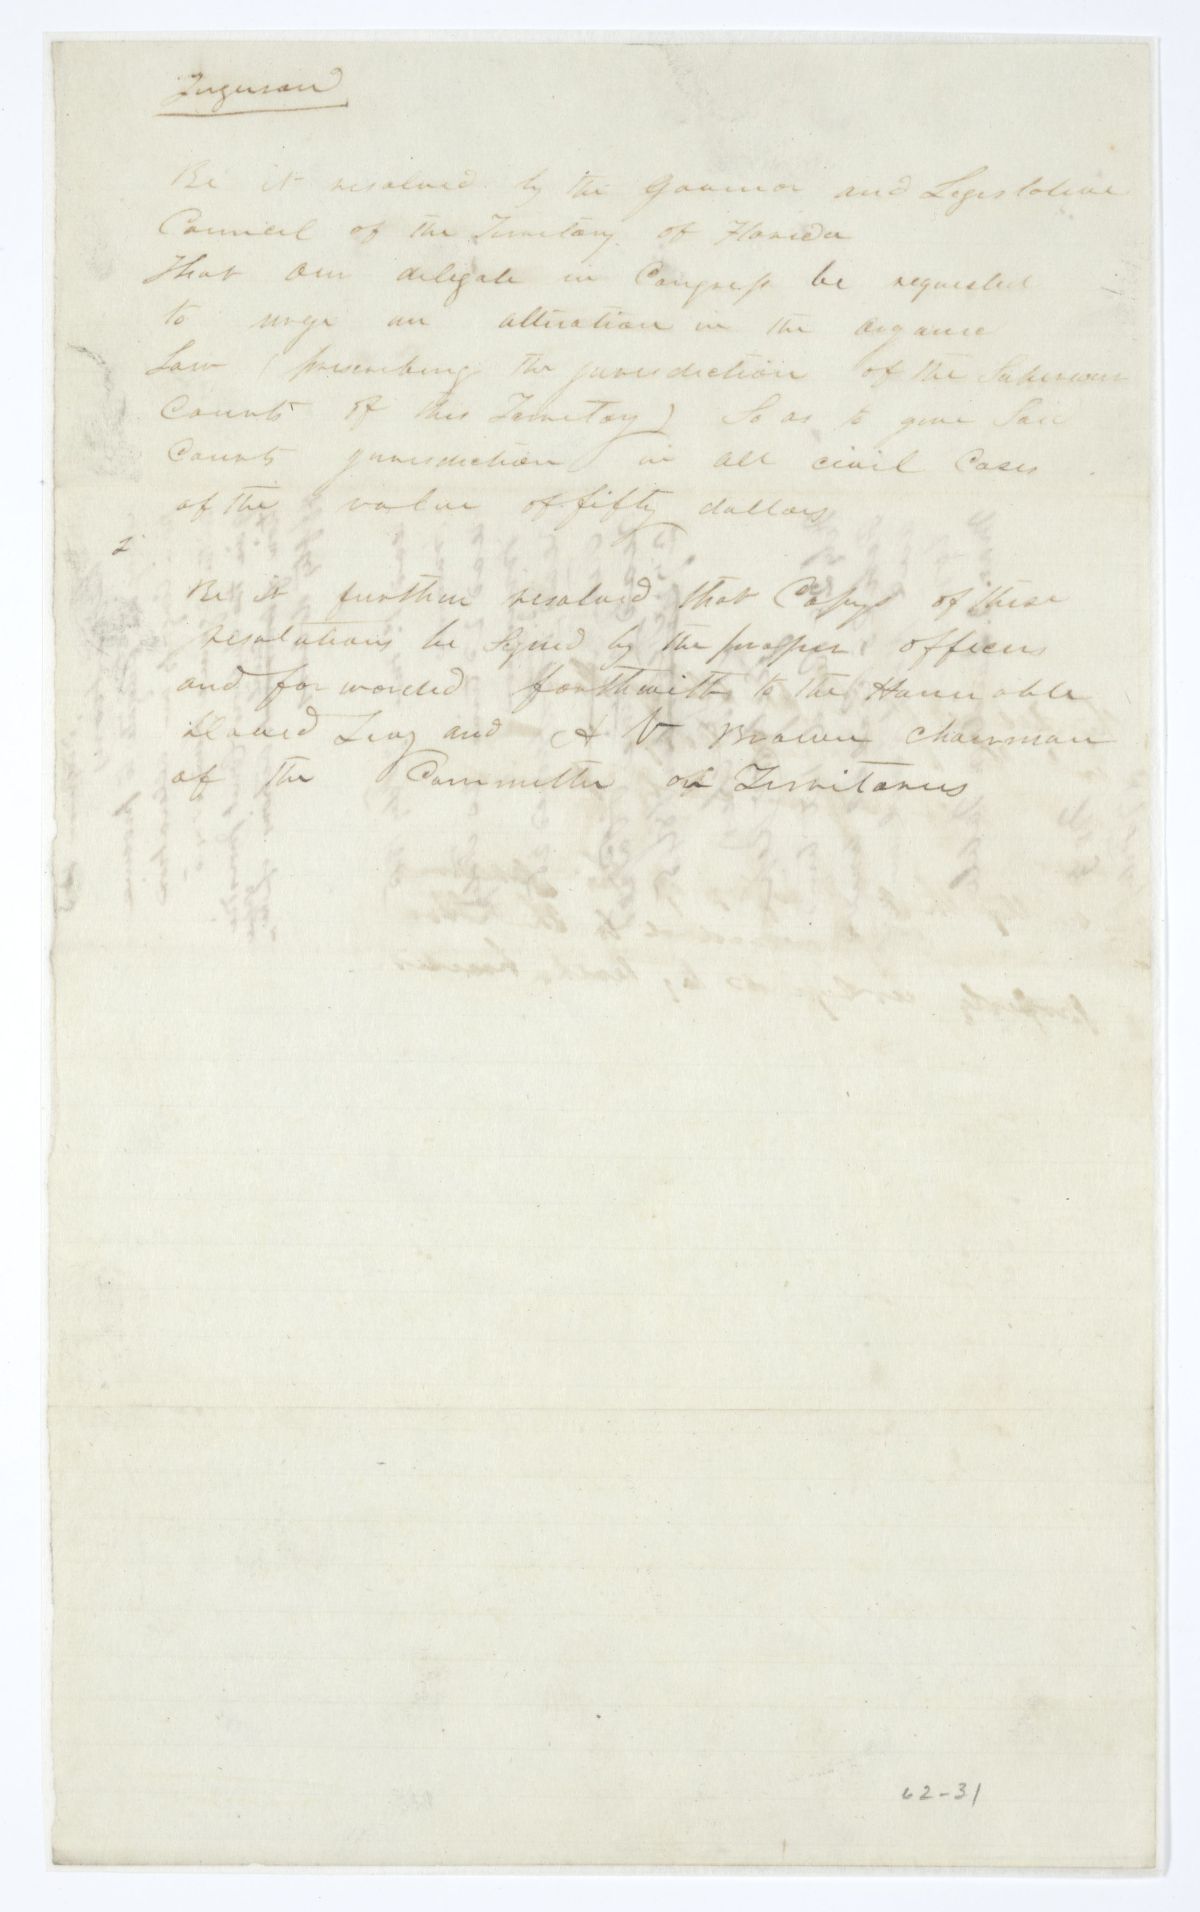 Be it resolved by the Governor and Legislative
Council of the Territory of Florida
That our delegate in Congress be requested
to urge an alteration in the organic
Law (prescribing the jurisdiction of the Superior
Courts of this Territory) So as to give Said
Courts jurisdiction in all civil Cases
of the value of fifty dollars
2
Be it further resolved that Copys of these
resolutions be Signed by the propper officers
and forwarded forthwith to the Hounoable
David Levy and A V Brown Chairman
of the Committee on Territories
62-31